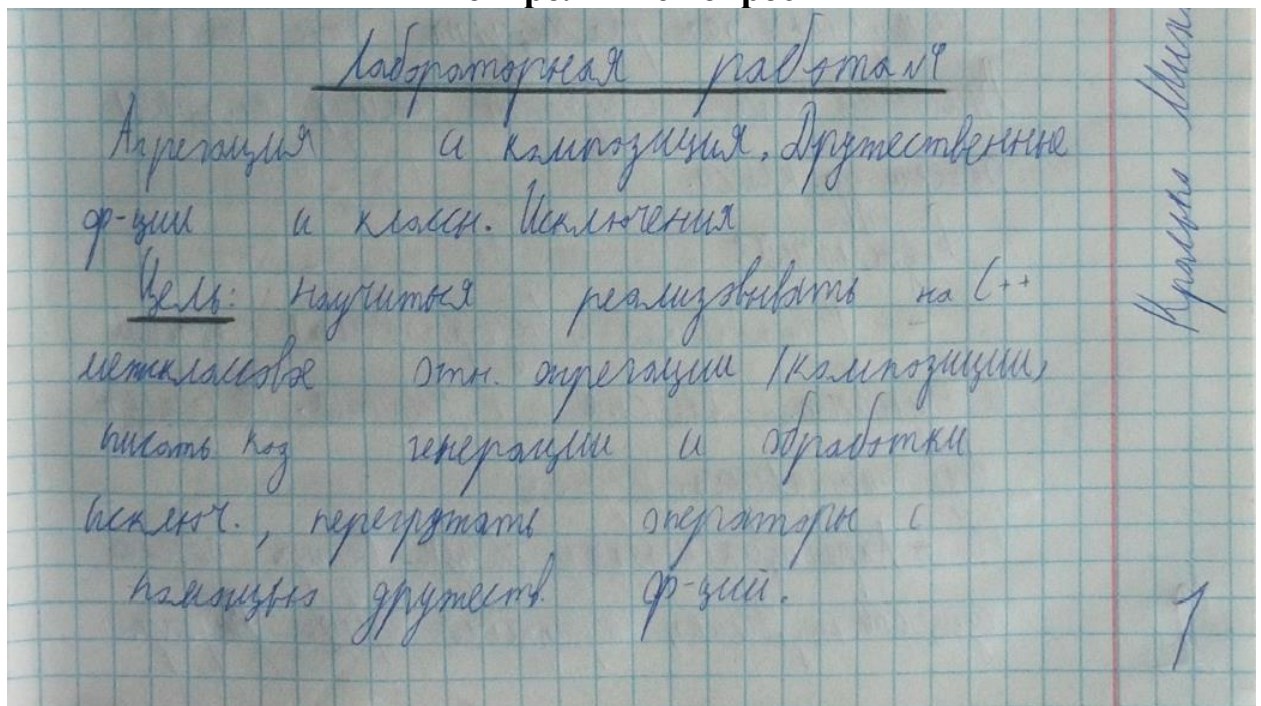 Лабораторная работа №4
Агрегация и композиция. Дружественные
ф-ции и классы. Исключения
Цель: научиться реализовывать на C++
межклассовое отн. агрегации/композиции,
писать код генерации и обработки
исключ., перегружать операторы с
помощью дружеств. ф-ций.
1